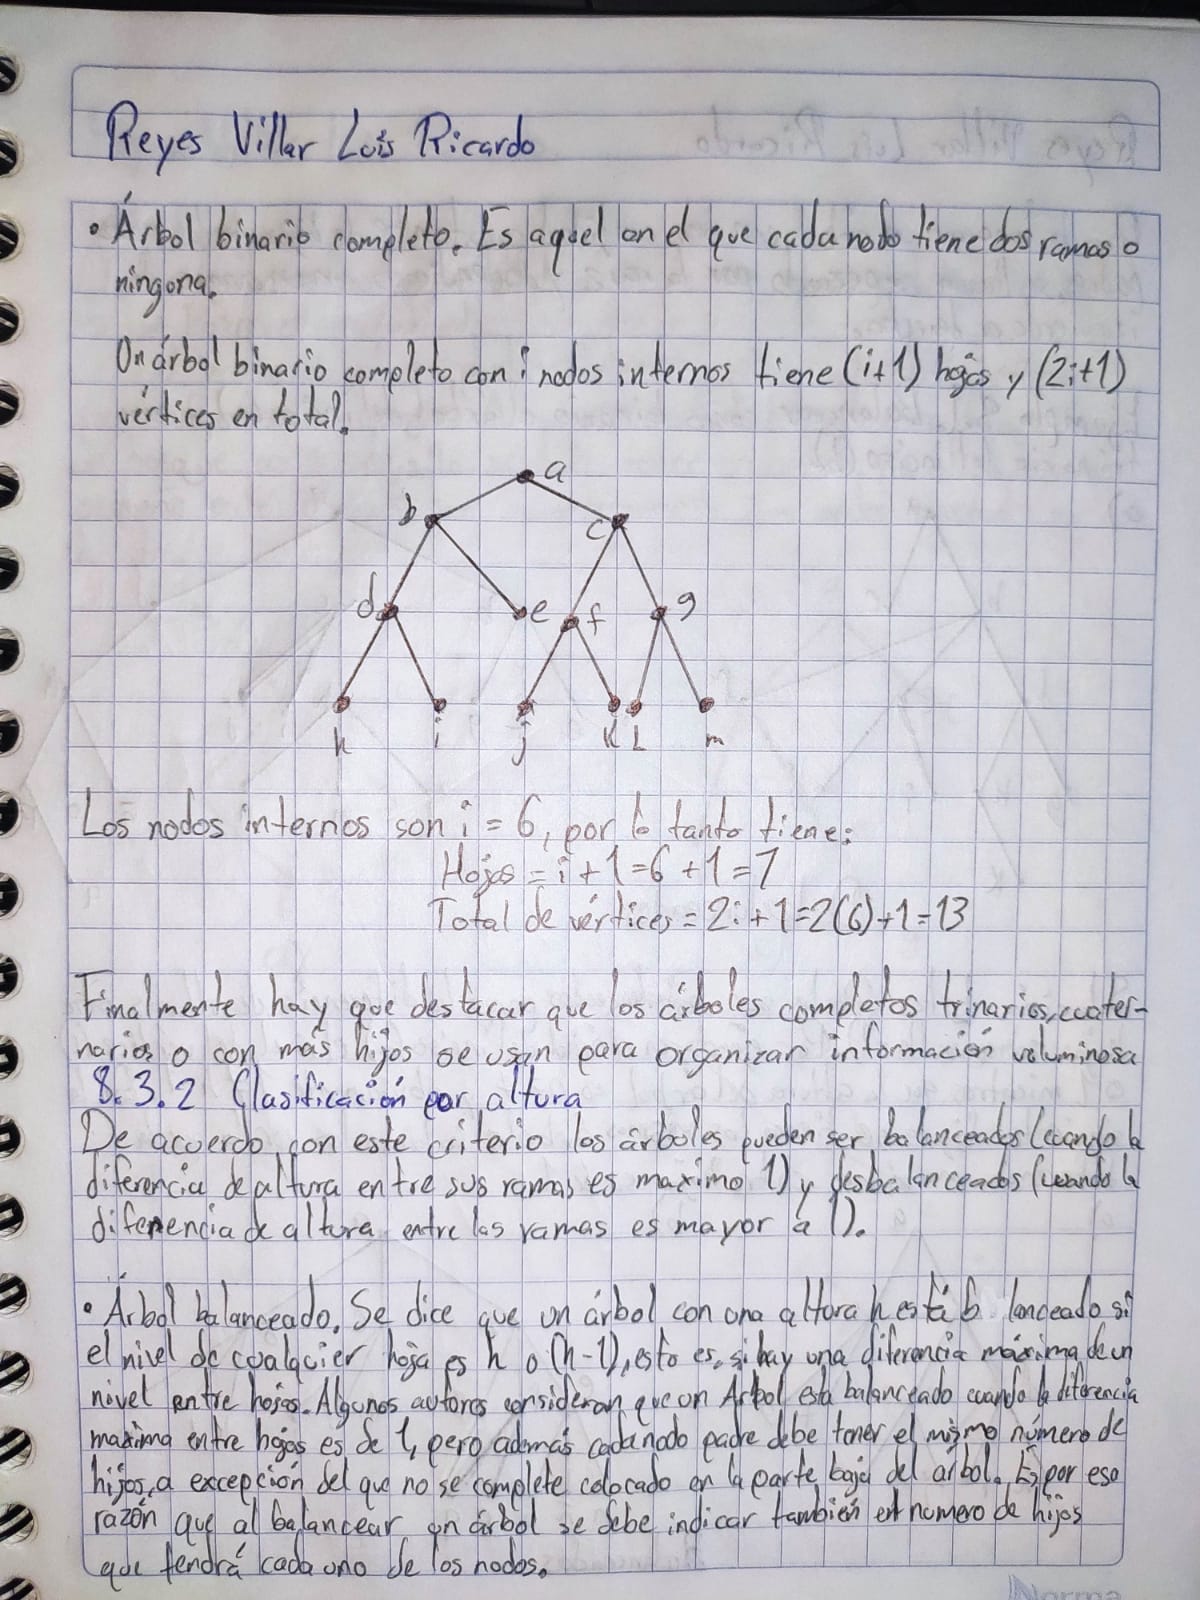 Reyes Villar Luis Ricardo
• Árbol binario completo. Es aquel en el que cada nodo tiene dos ramas o
ninguna.
Un árbol binario completo con i nodos internos tiene (i+1) hojas y (2i+1)
vértices en total.
a
b c
d e f g
h i j k L m
Los nodos internos son i = 6, por lo tanto tiene:
Hojas = i + 1 = 6 + 1 = 7
Total de vértices = 2i + 1 = 2(6) + 1 = 13
Finalmente hay que destacar que los árboles completos trinarios, cuater-
narios o con más hijos se usan para organizar información voluminosa
8.3.2 Clasificación por altura
De acuerdo con este criterio los árboles pueden ser balanceados (cuando la
diferencia de altura entre sus ramas es maximo 1) y desbalanceados (cuando la
diferencia de altura entre las ramas es mayor a 1).
• Árbol balanceado. Se dice que un árbol con una altura h está b lanceado si
el nivel de cualquier hoja es h o (h-1), esto es, si hay una diferencia máxima de un
nivel entre hojas. Algunos autores consideran que un Arbol esta balanceado cuando la diferencia
maxima entre hojas es de 1, pero además cada nodo padre debe tener el mismo número de
hijos, a excepción del que no se complete colocado en la parte baja del arbol. Es por eso
razón que al balancear un árbol se debe indicar también el numero de hijos
que tendrá cada uno de los nodos.
Norma